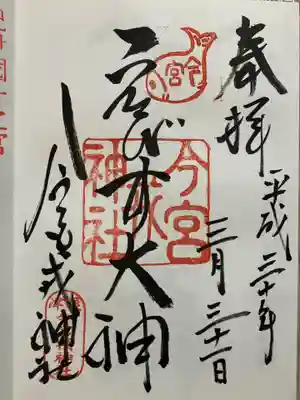 奉拝
平成三十年
三月三十一日
今宮
ゑびす大神
今宮
戎
神社
今宮戎神社